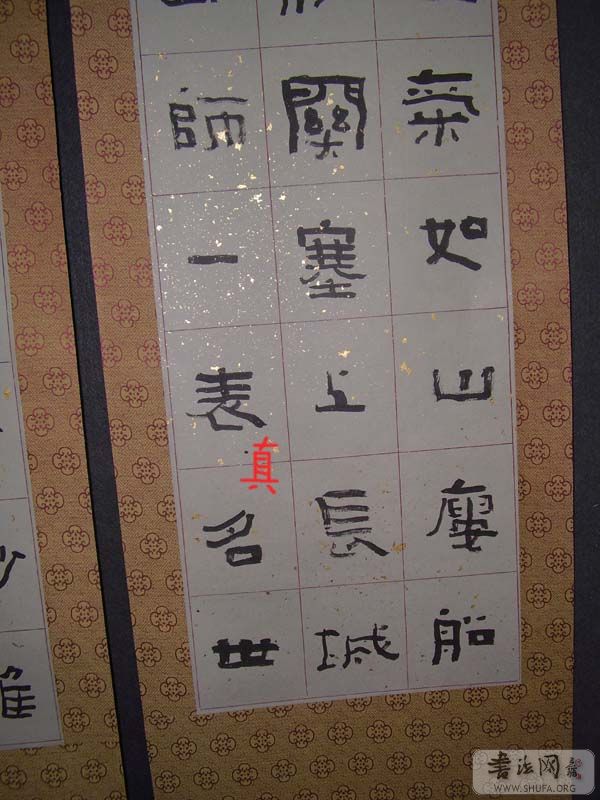 氣如山廔船
關塞上長城
師一表真名世
書法网
WWW.SHUFA.ORG